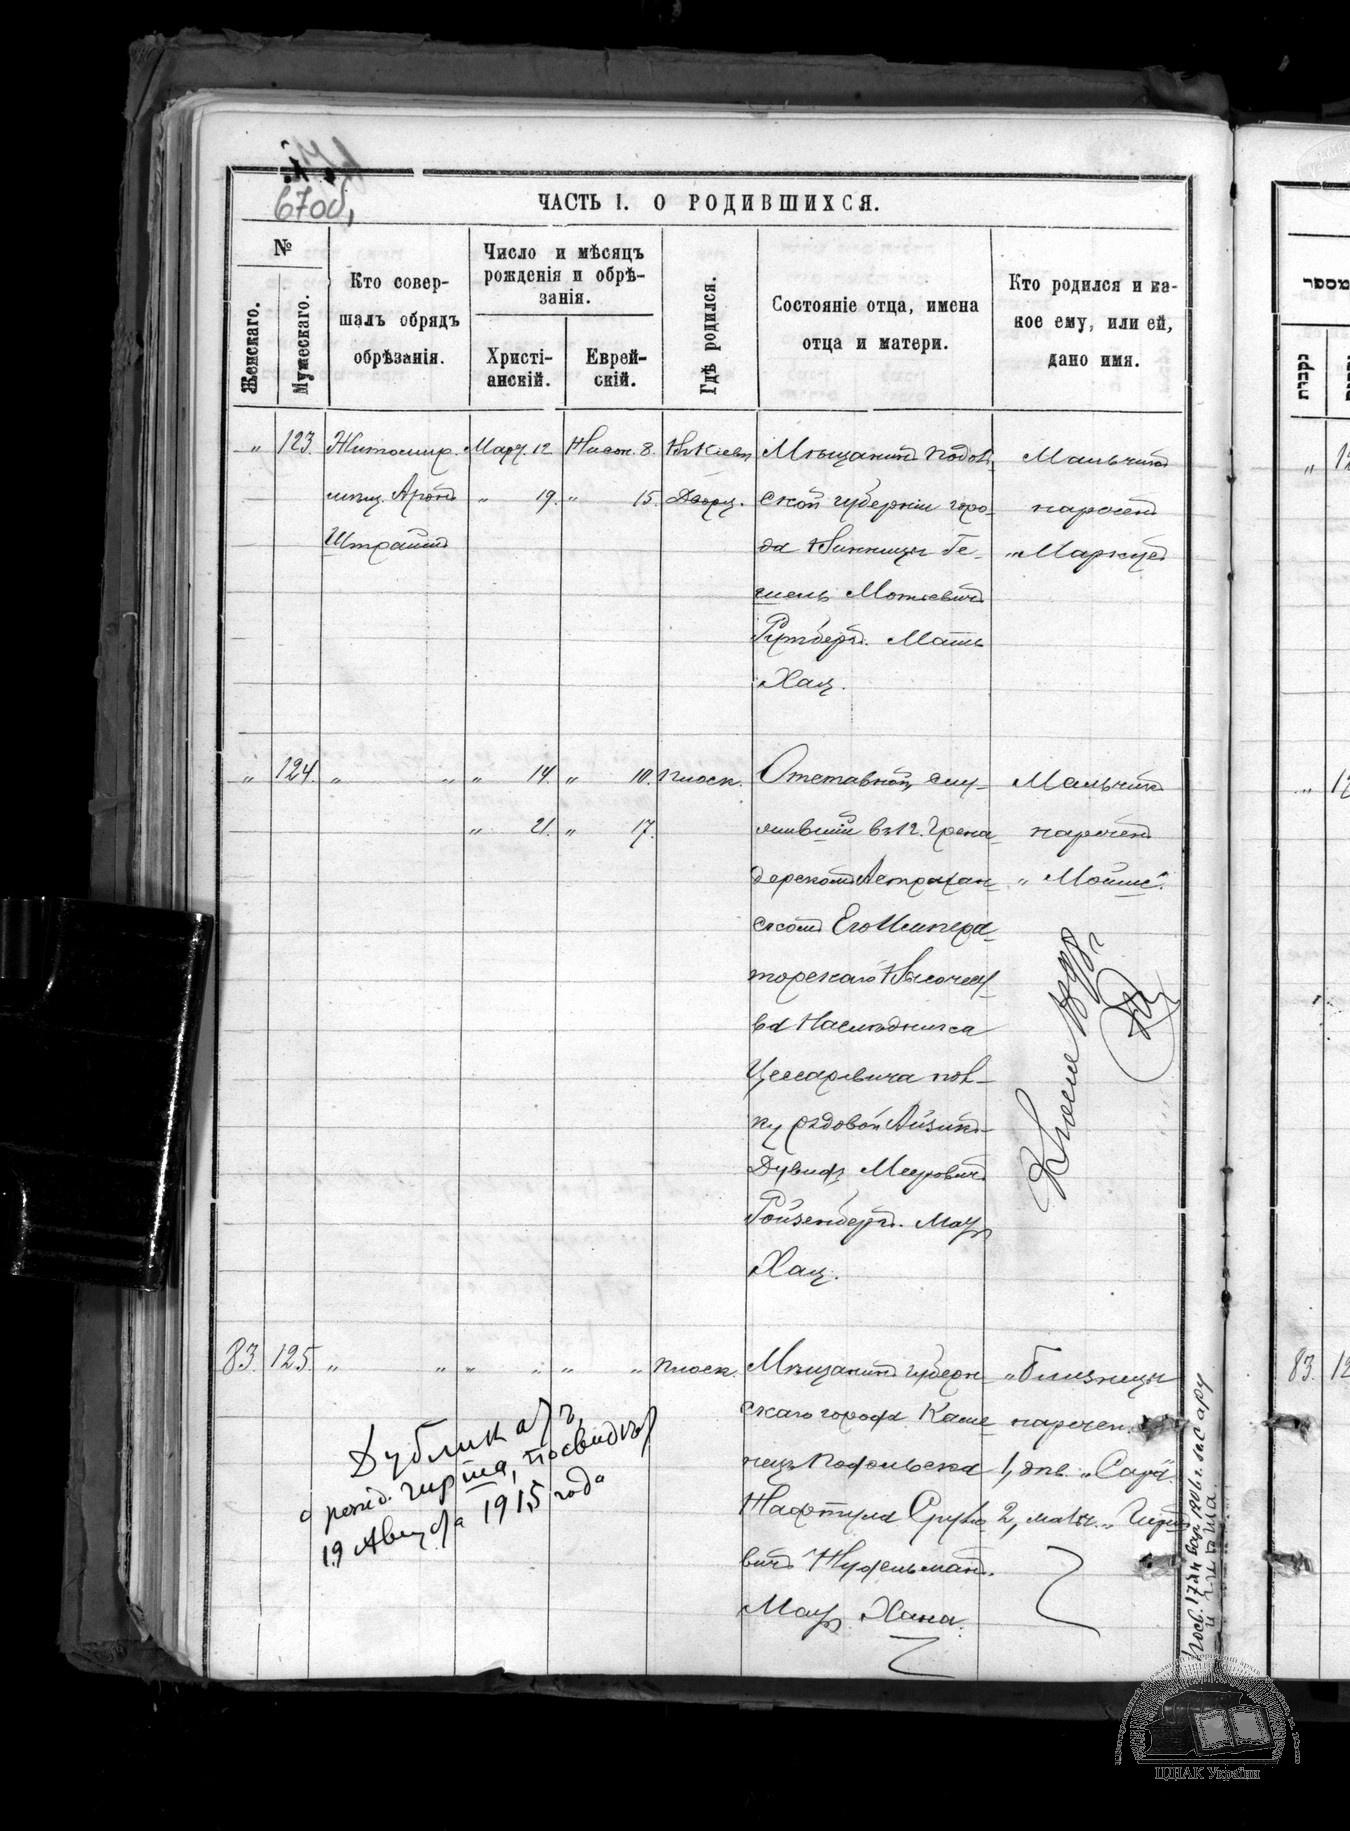 67об,
ЧАСТЬ I. О РОДИВШИХСЯ.
№
Женскаго.
Мужескаго.
Кто совер-
шалъ обрядъ
обрѣзанія.
Число и мѣсяцъ
рожденія и обрѣ-
занія.
Христі-
анскій.
Еврей-
скій.
Гдѣ родился.
Состояніе отца, имена
отца и матери.
Кто родился и ка-
кое ему, или ей,
дано имя.
" 123.
Житомир.
мѣщ. Аронъ
Штраймъ
Март. 12
" 19.
Нисон. 8.
" 15.
Въ Кіевѣ
Дворц.
Мѣщанинъ Подол-
ской губерніи горо-
да Винницы Ге-
шель Мотьевичъ
Гутбергъ. Мать
Хая.
Мальчикъ
нареченъ
„Маркусъ
" 124.
" "
" 14.
" 21.
" 10.
" 17.
Плоск.
Отставной, слу-
жившій въ 12. Грена-
дерскомъ Астрахан-
скомъ Его Импера-
торскаго Высочест-
ва Наслѣдника
Цесаревича пол-
ку рядовой Айзикъ-
Дувидъ Мееровичъ
Ройзенбергъ. Мать
Хая.
Мальчикъ
нареченъ
„Мойше".
83. 125.
" "
" "
" "
Плоск.
Мѣщанинъ губерн-
скаго города Каме-
нецъ Подольска
Нафтула Сруле-
вичъ Нудельманъ.
Мать Хана.
„Близнецы
наречен.
1, дѣв. „Сара".
2, мальч. „
Дубликатъ
о рожд. Гирша, посвидѣт
19 Августа 1915 года
Посв. 17 Январ. 1906 г. на Сару
и Гирша.
מספר
נקבות
" 12
" 12
83. 12
ЦДІАК України